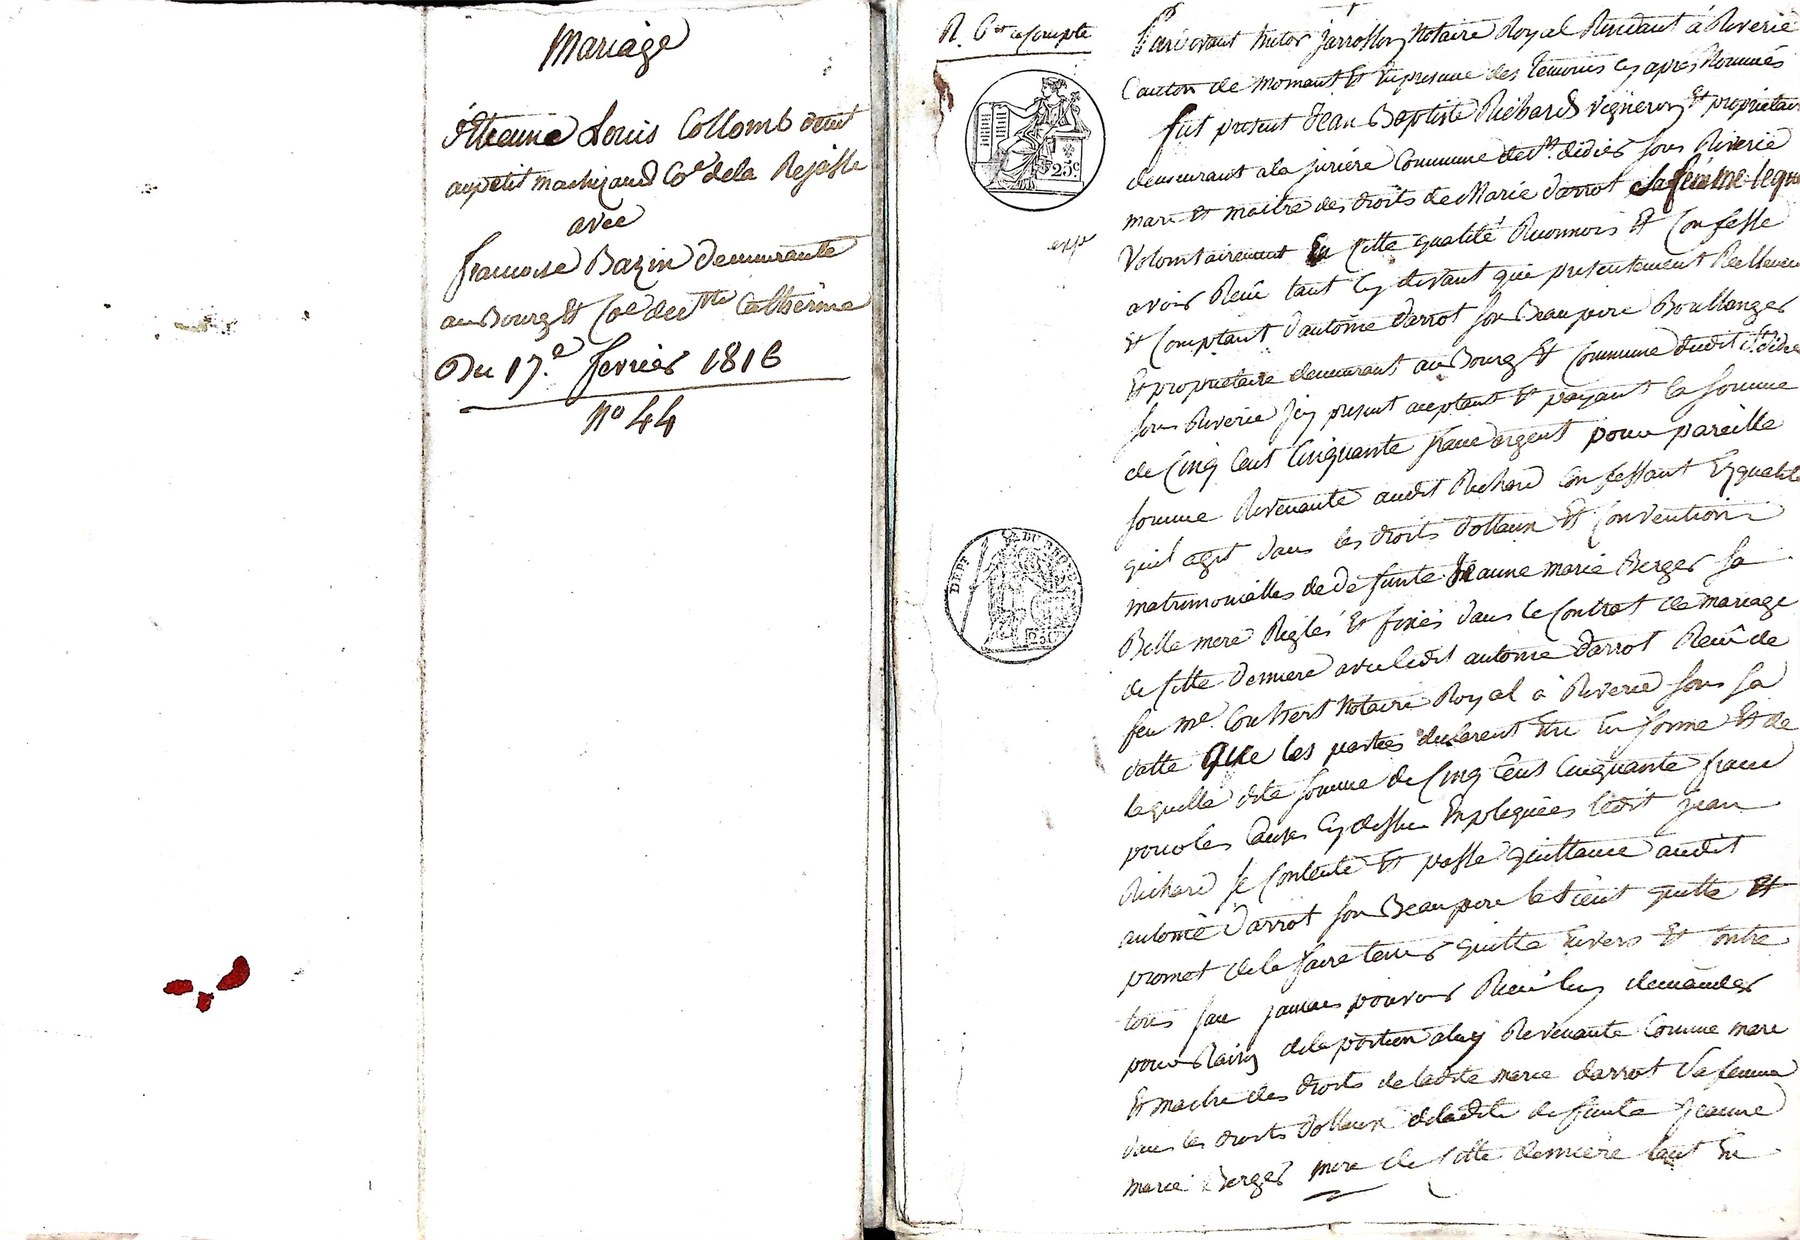 Mariage
Étienne Louis Collomb demt
au petit machizaud Coe de la Rajasse
avec
francoise Bazin demeurante
au Bourg et Coe de Ste Catherine
Du 17.e fevrier 1816
No 44
R. Ctt a Compte
Pardevant Victor Jarrosson Notaire Royal Residant à Riverie
Canton de Mornant Et En presence des temoins cy après Nommés
fut present Jean Baptiste Richard vigneron Et proprietaire
demeurant a la juriére Commune de St. didier sous Riverie
mari et maitre des droits de Marie darrot sa femme lequel
Volontairement En Cette qualité Reconnois Et Confesse
avoir Reçû tant Cy devant que presentement Reellement
Et Comptant d'antoine darrot son Beau pere Boullanger
Et proprietaire demeurant au Bourg Et Commune dudit St didier
sous Riverie Icy present aceptant Et payant la somme
de Cinq Cent Cinquante franc argent pour pareille
somme Revenante audit Richard Confessant Eyqualité
quil agit dans les droits dottaux Et Convention
matrimonielles de defunte Jeanne marie Berger sa
Belle mere Reglés Et fixés dans le Contrat de mariage
de Cette derniere avec ledit antoine darrot Reçû de
feu Me. Notaire Royal à Riverie sous sa
datte que les parties declarent Etre En forme Et de
laquelle dite somme de Cinq Cent Cinquante franc
pour les Causes Cy dessus Expliquées ledit jean
Richard se Contente Et passe quittance audit
antoine darrot son Beau pere le tient quitte Et
promet de le faire tenir quitte Envers Et Contre
tous sans jamais pouvoir Rien luy demander
pour Raison de la portion a luy Revenante Comme mari
Et maitre des droits de ladite marie darrot sa femme
dans les droits dottaux de ladite defunte Jeanne
marie Berger mere de Cette derniere tant En
DEPT DU RHONE
25c